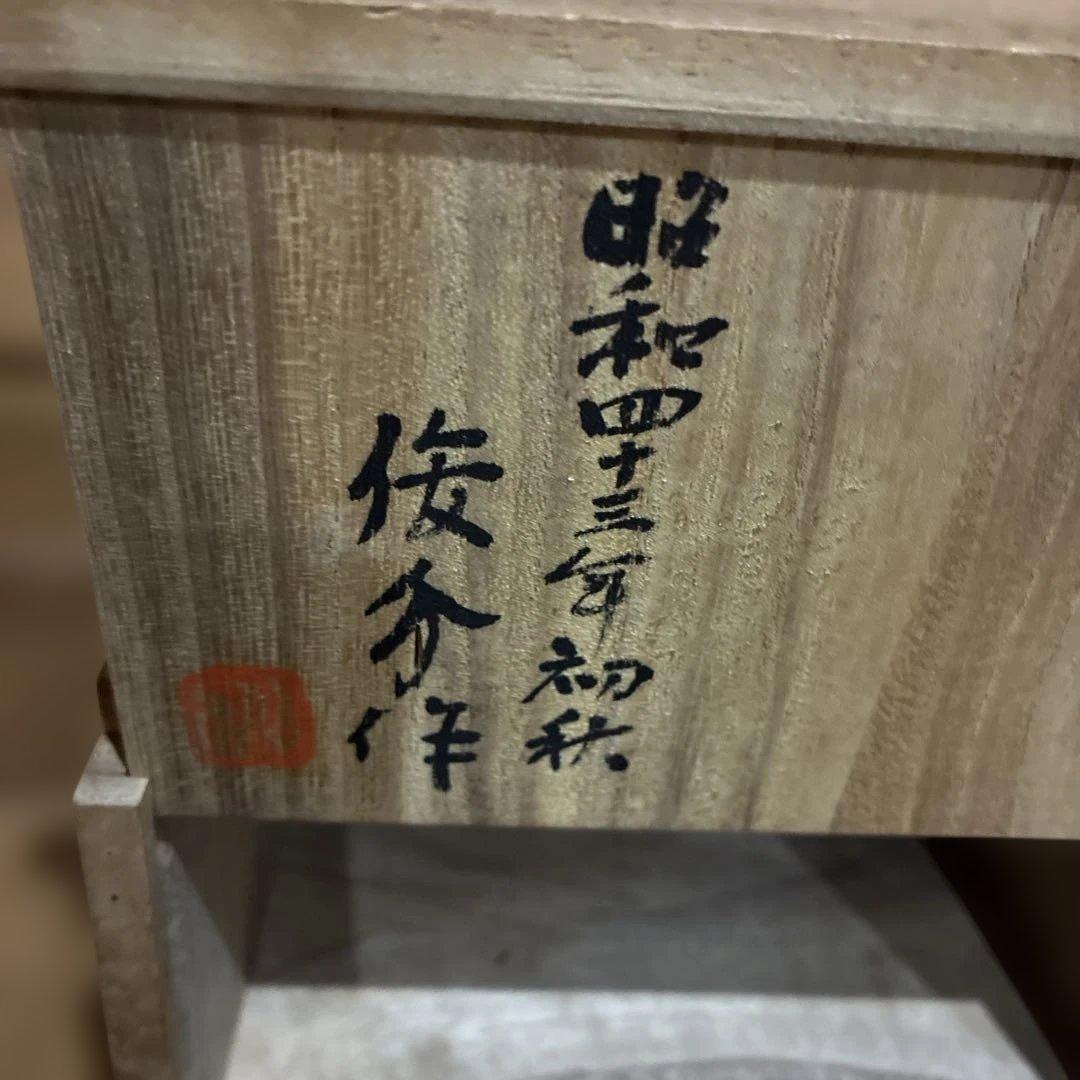 昭和四十三年初秋
俊介作